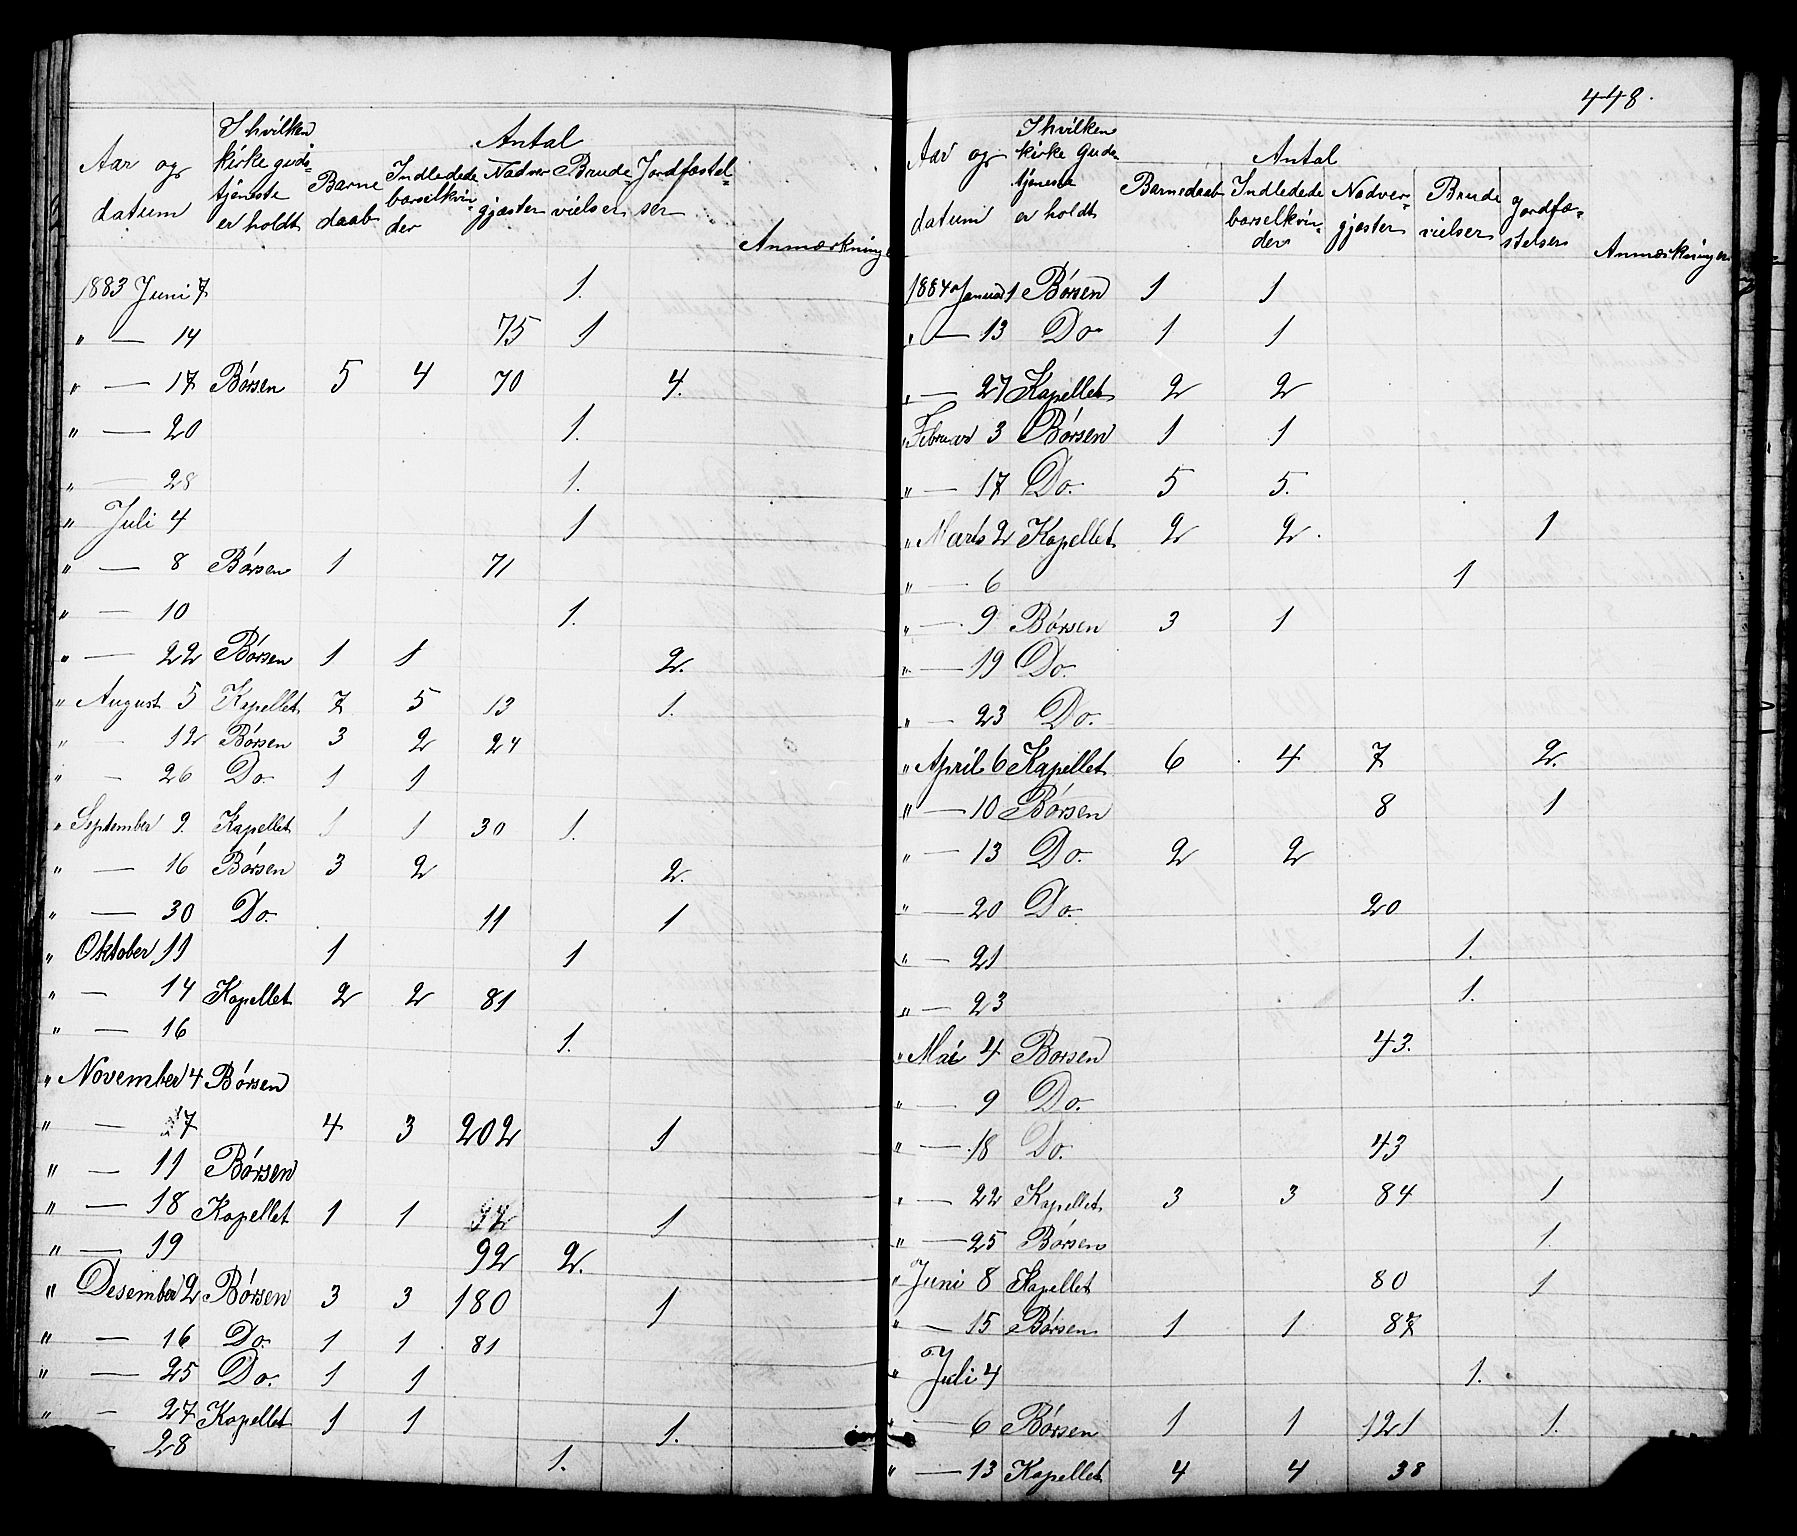 Aar og datum | I hvilken kirke guds- tjeneste er holdt | Antal | Barne daab | Indledede barselkvin- der | Nadver gjæster | Brude vielser | Jordfæstel- ser | Anmærkninger
1883 Juni 7 1.
" — 14 75 1
" — 17 Börsen 5 4 70 4.
" — 20 1.
" — 28 1.
" Juli 4 1
" — 8 Börsen 1 71
" — 10 1.
" — 22 Börsen 1 1 2.
" August 5 Kapellet 7 5 13 1.
" — 12 Börsen 3 2 24
" — 26 Do. 1 1
" September 9. Kapellet 1 1 30 1.
" — 16 Börsen 3 2 2.
" — 30 Do. 11 1
" Oktober 11 1 1
" — 14 Kapellet 2 2 81
" — 16 1.
" November 4 Börsen
" — 7 4 3 202 1
" — 11 Börsen
" — 18 Kapellet 1 1 1
" — 19 92 2.
" Desember 2 Börsen 3 3 180 1
" — 16 Do. 1 1 81
" — 25 Do. 1 1
" — 27 Kapellet 1 1 1.
— 28 1.
448.
Aar og datum | I hvilken kirke guds- tjeneste er holdt | Antal | Barnedaab | Indledede barselkvin- der | Nadver- gjæster | Brude vielser | Jordfæ- stelser | Anmærkninger
1884 Januar 1 Börsen 1 1
" — 13 Do 1 1
" — 27 Kapellet 2 2
" Februar 3 Börsen 1 1
" — 17 Do. 5 5.
" Marts 2 Kapellet 2 2. 1
" — 6 1
" — 9 Börsen 3 1
" — 19 Do.
" — 23 Do.
" April 6 Kapellet 6 4 7 2.
" — 10 Börsen 8 1
" — 13 Do. 2 2
" — 20 Do. 20
" — 21 1.
" — 23 1.
" Mai 4 Börsen 43.
" — 9 Do.
" — 18 Do. 43
" — 22 Kapellet 3 3 84 1
" — 25 Börsen 1.
" Juni 8 Kapellet 80 1
" — 15 Börsen 1 1 87
" Juli 4 1.
" — 6 Börsen 1 1 121 1.
" — 13 Kapellet 4 4 38